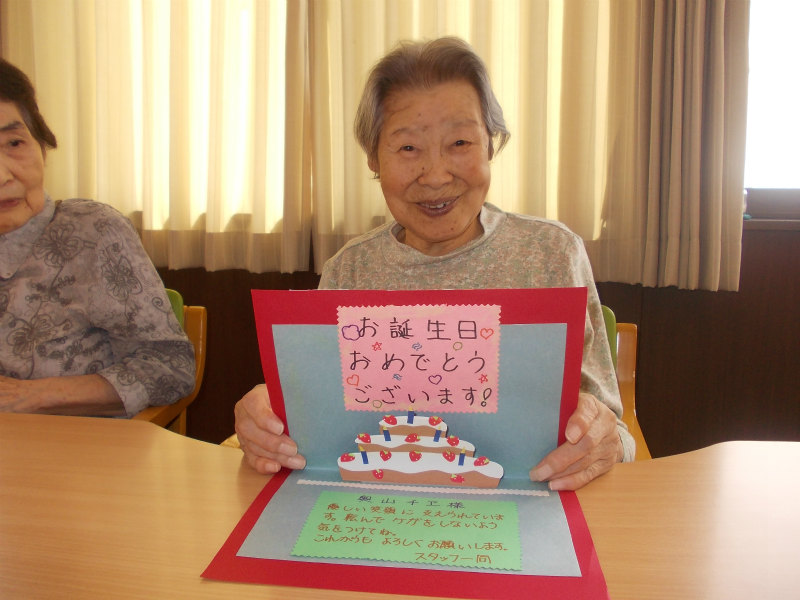 お誕生日
おめでとう
ございます!
奥山千工様
優しい笑顔に支えられていま
す。転んでケガをしないよう
気をつけてね。
これからもよろしくお願いします。
スタッフ一同